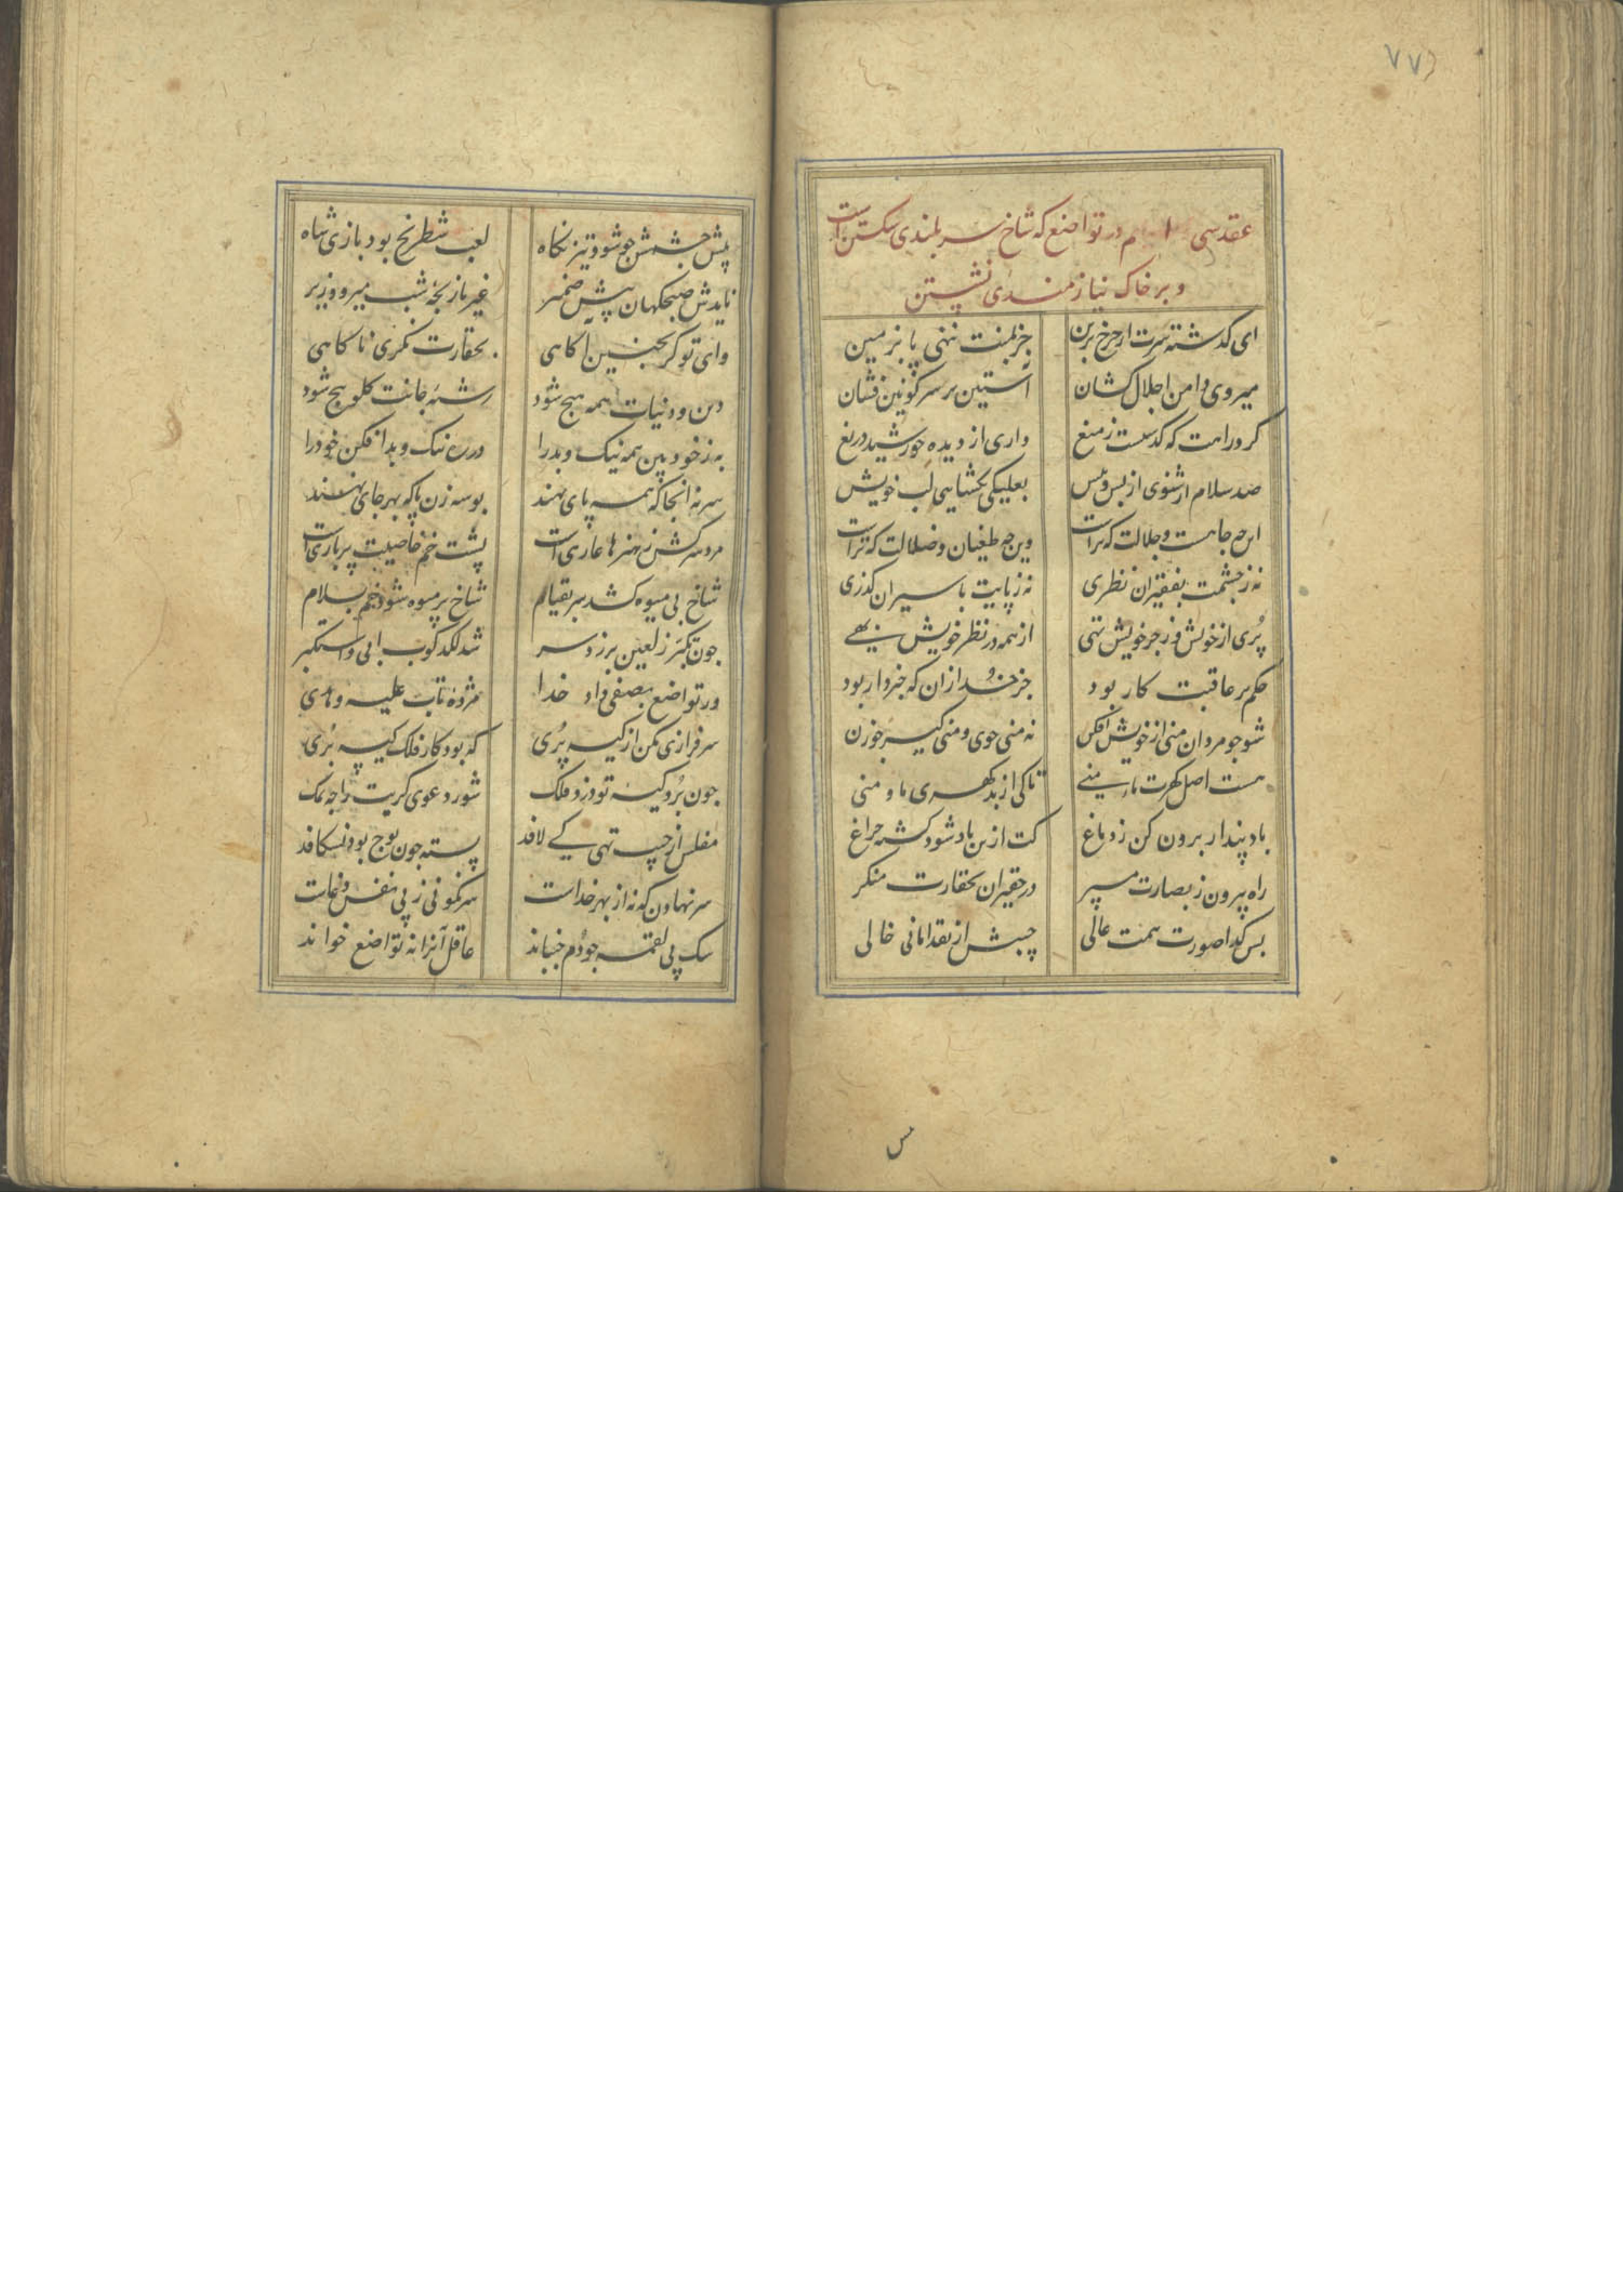 ۷۷
عقد سی ا م در تواضع که شاخ سربلندی شکستن است
و بر خاک نیازمندی نشستن
ای کذشته سرت از چرخ برین جز بمنت ننهی پا بزمین
میروی دامن اجلال کشان آستین بر سر کونین فشان
کر در راهت که کذست ز میغ داری از دیده خورشید دریغ
صد سلام ار شنوی از پس و پیش بعلیکی نکشایی لب خویش
این چه جاهست و جلالت که تراست وین چه طغیان و ضلالت که تراست
نه ز چشمت بفقیران نظری نه ز پایت باسیران کذری
پُری از خویش و ز جز خویش تهی از همه در نظر خویش بهی
حکم بر عاقبت کار بود جز خدا زان که خبردار بود
شو چو مردان منی از خویش افکن نه منی جوی و منی کیر چو زن
هست اصل کهرت ماء منی تا کی از بدکهری ما و منی
باد پندار برون کن ز دماغ کت ازین باد شود کشته چراغ
راه بیرون ز بصارت مسپر در حقیران بحقارت منکر
بس کدا صورت همت عالی جیبش از نقد امانی خالی
پیش چشمش چو شود تیز نکاه لعب شطرنج بود بازی شاه
نایدش صبحکهان پیش ضمیر غیر بازیچه شب میر و وزیر
وای تو کر بچنین آکاهی بحقارت نکری ناکاهی
دین و دنیات همه هیچ شود رشته جانت کلو پیچ شود
به ز خود بین همه نیک و بد را در ره نیک و بد افکن خود را
سر نه آنجا که همه پای نهند بوسه زن پا که بهر جای نهند
مرد سرکش ز هنرها عاری است پشت خم خاصیت پر باری است
شاخ بی میوه کشد سر بقیام شاخ پر میوه شود خم بسلام
چون تکبر ز لعین برزد سر شد لکدکوب ابی واستکبر
ور تواضع بصفی داد خدا مژده تاب علیه و هدی
سرفرازی مکن از کیسه پُری که بود کار فلک کیسه بُری
چون بُرد کیسه تو دزد فلک شور دعوی کریت را چه نمک
مفلس از جیب تهی کے لافد پسته چون پوچ بود نشکافد
سر نهادن که نه از بهر خداست سرنکونی ز پی نفس دغاست
سک پی لقمه چو دُم جنباند عاقل آنرا نه تواضع خواند